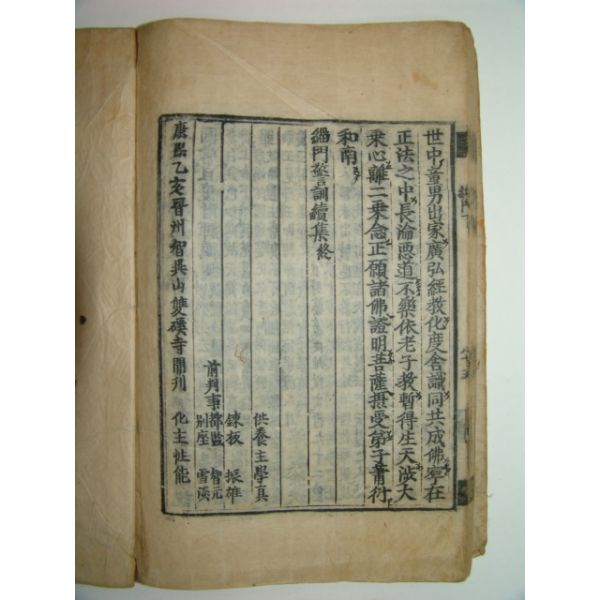 世中童男出家廣弘經教化度含識同共成佛寧在
正法之中長淪惡道不樂依老子教暫得生天涉大
乘心離二乗念正願諸佛證明菩薩摂受弟子蕭衍
和南
緇門警訓續集終
供養主學眞
鍊板 振雄
前判事都監 智元
別座 雪渓
康熙乙亥晉州智異山雙磎寺開刋 化主性能